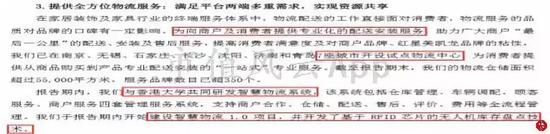 3. 提供全方位物流服务：满足平台两端多重需求，实现资源共享
在家居装饰及家具行业的终端服务体系中，物流配送的工作直接面对消费者，物流服务的品
质对品牌的口碑有一定影响，为向商户及消费者提供专业化的配送安装服务，助力广大商户“最
后一公里”的配送、安装及售后服务，提高消费者满意度及对商户品牌、红星美凯龙品牌的粘性，
我们已在南京、无锡、石家庄
7座城市开设试点物流中心，为消费者提
供从商品购买到产品专业配送安装的
截至报告期末，我们的物流仓储面积
超过55,000平方米，服务商户数目已超350个。
报告期内，我们与香港大学共同研发智慧物流系统，该系统包括仓库管理、车辆调配、顾客
服务、商户服务四套管理服务系统，支持商户合作、仓储、配送、售后、评价、费用等全流程管
理。我们于报告期内开始建设智慧物流 1.0 项目，并开发了基于 RFID 芯片的无人机库存盘点技
术。